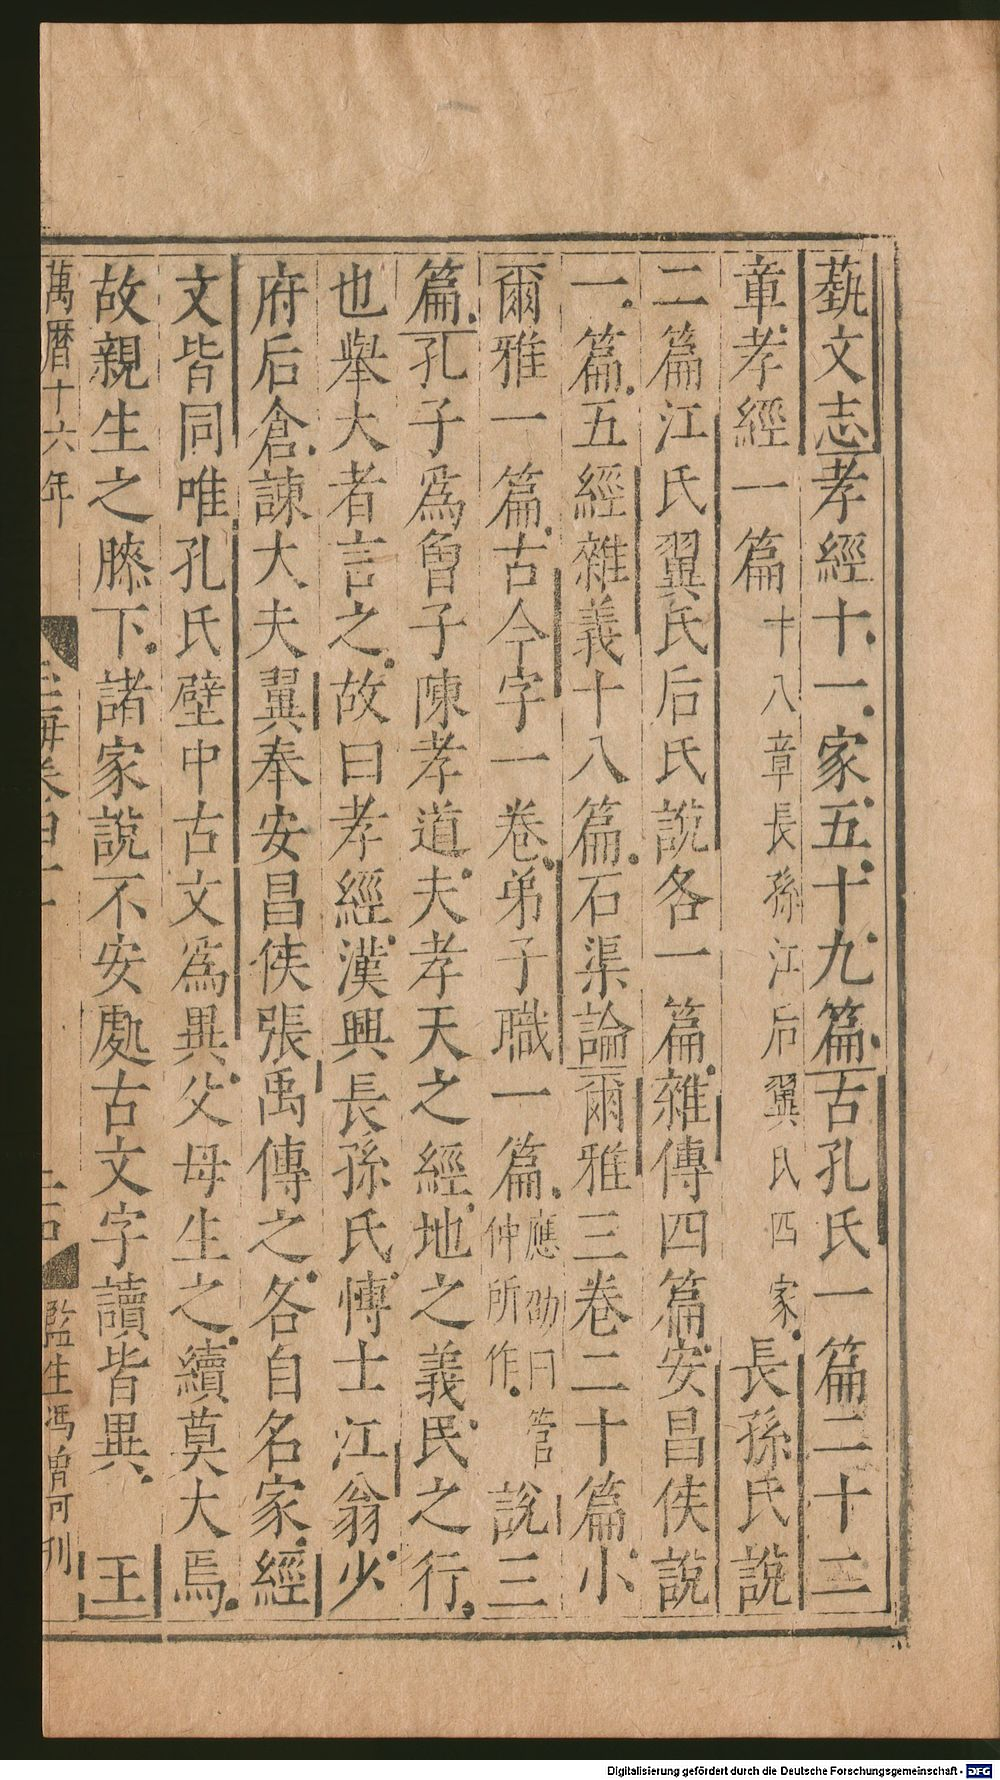 藝文志孝經十一家五十九篇古孔氏一篇二十二
章孝經一篇十八章長孫江后翼氏四家長孫氏說
二篇江氏翼氏后氏說各一篇雜傳四篇安昌侯說
一篇五經雜義十八篇石渠論爾雅三卷二十篇小
爾雅一篇古今字一卷弟子職一篇應劭曰管仲所作說三
篇孔子爲曾子陳孝道夫孝天之經地之義民之行
也舉大者言之故曰孝經漢興長孫氏博士江翁少
府后倉諫大夫翼奉安昌侯張禹傳之各自名家經
文皆同唯孔氏壁中古文爲異父母生之續莫大焉
故親生之膝下諸家說不安處古文字讀皆異 王
萬曆十六年 玉海卷四十一 監生馮曾可刊
Digitalisierung gefördert durch die Deutsche Forschungsgemeinschaft - DFG